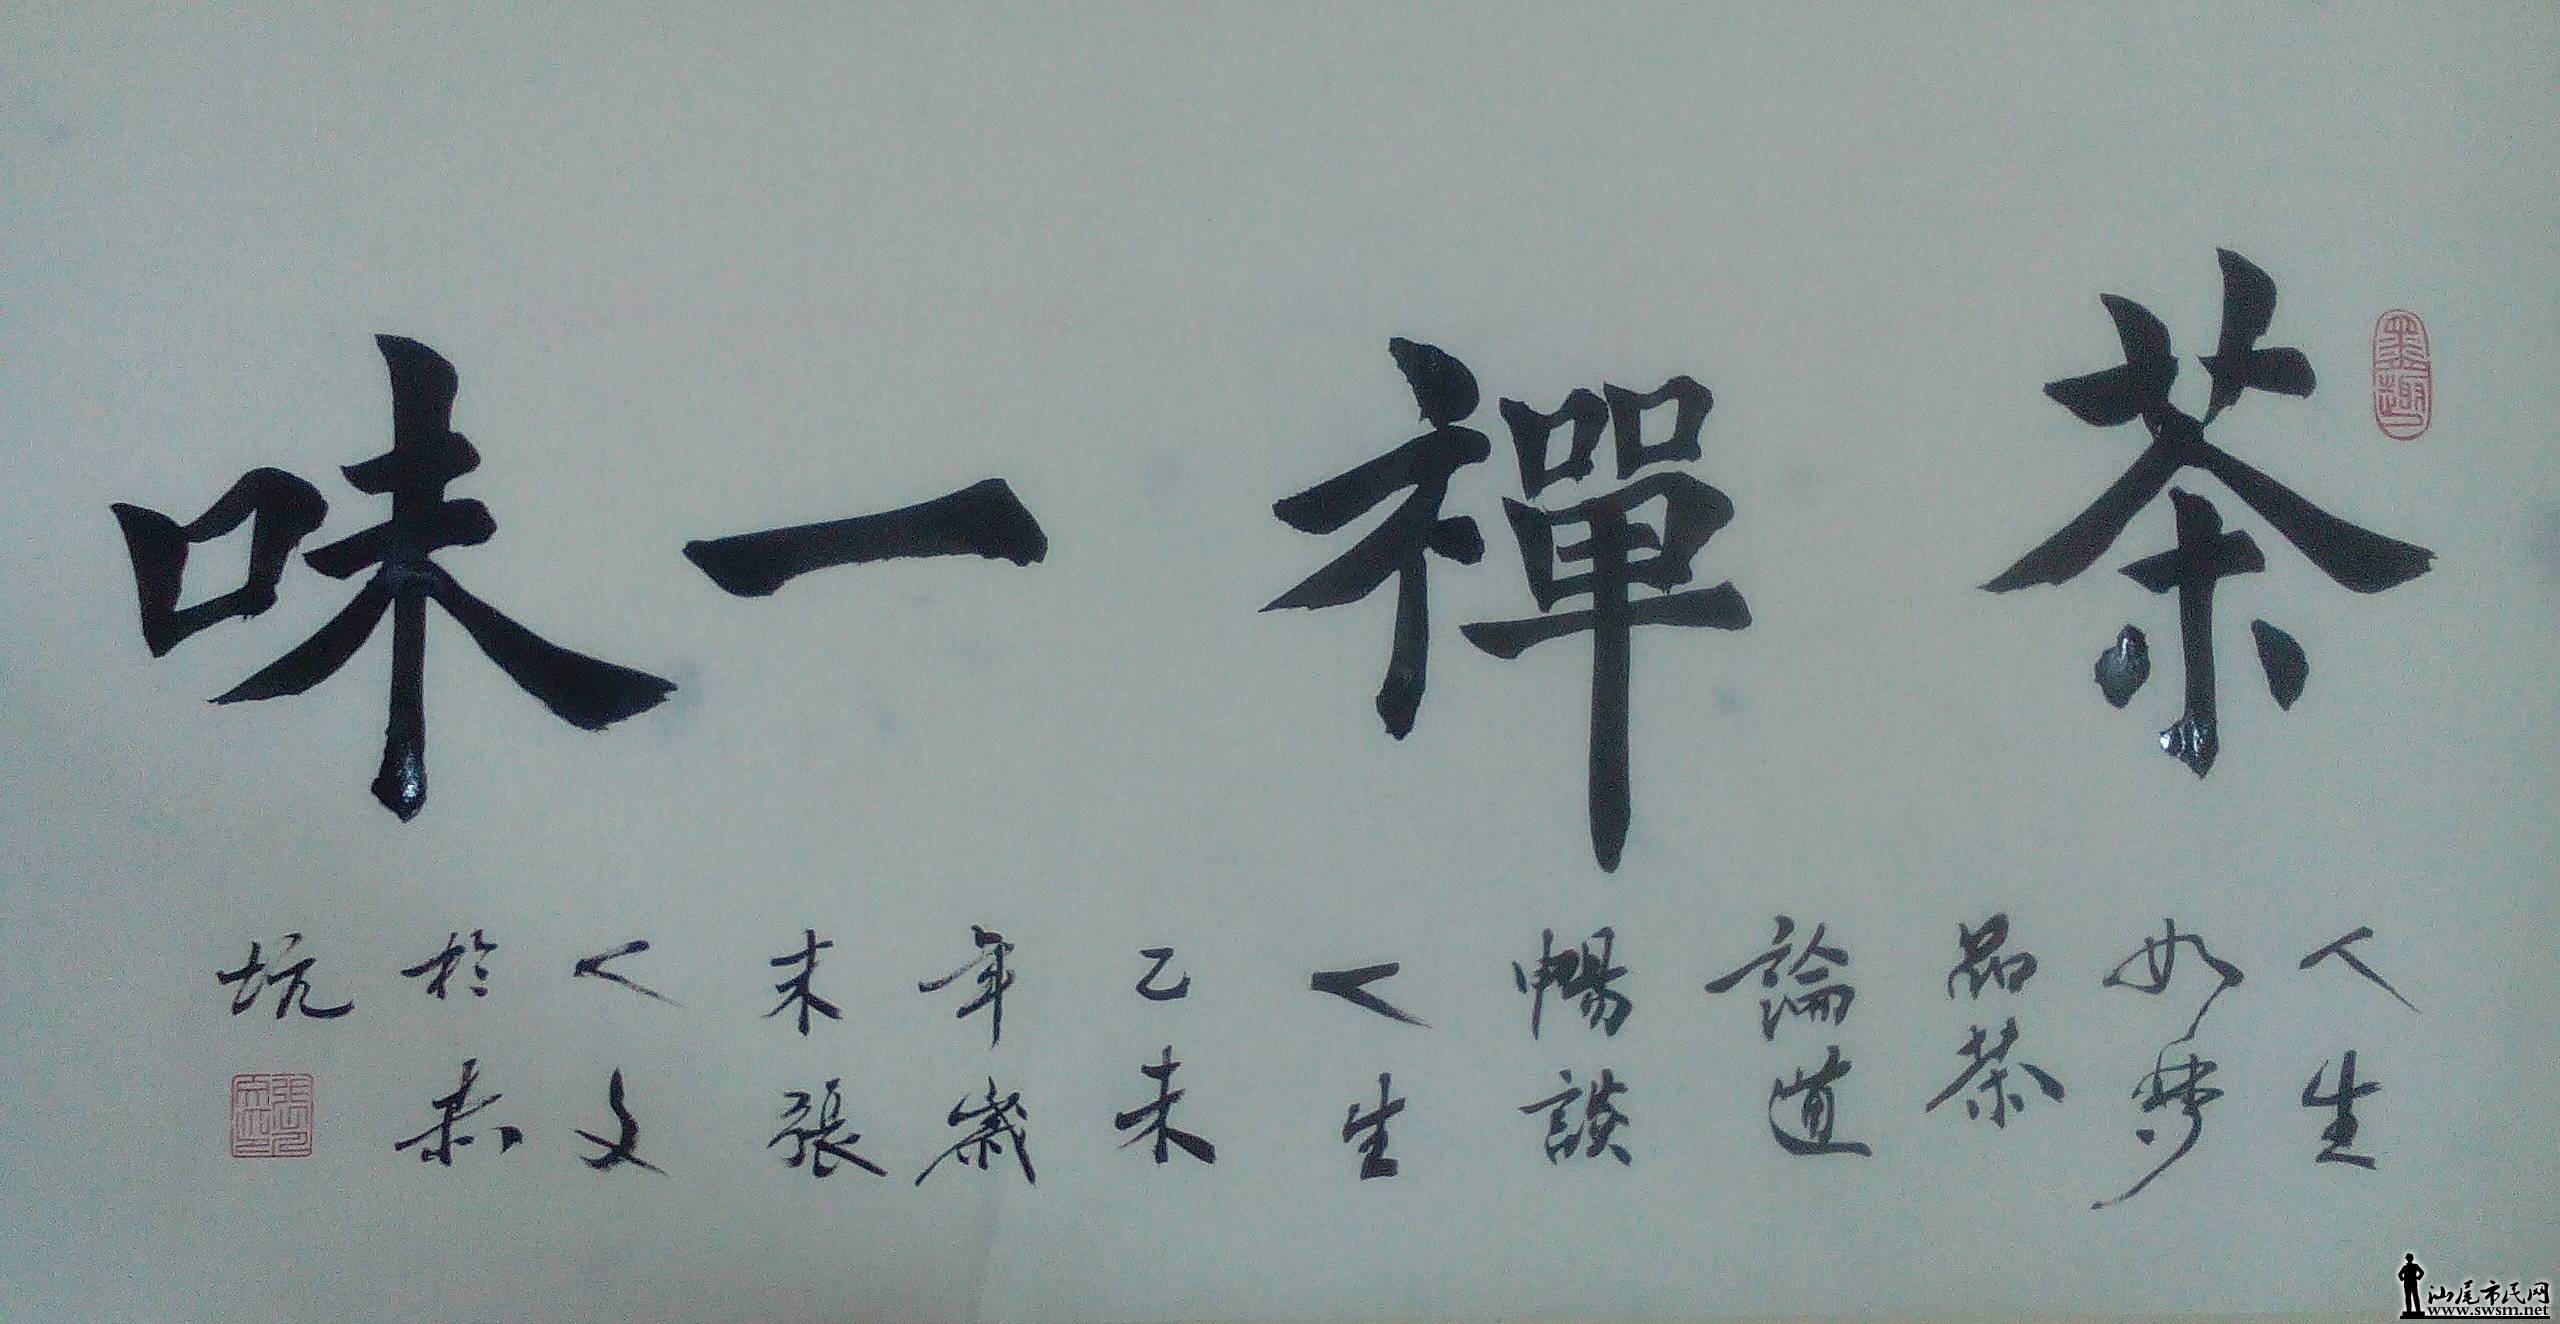 茶禪一味
人生
如夢
品茶
論道
暢談
人生
乙未
年歲
末張
人文
於赤
坑
墨趣
汕尾市民网
www.swsm.net